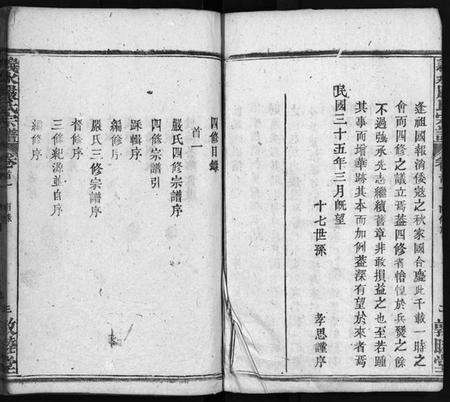 逢祖國報消倭寇之秋家國合慶此千載一時之
會而四修之議立焉蓋四修者惟惶於兵燹之餘
不過強承先志繼續舊章非敢損益之也至若踵
其事而增華跡其本而加例蓋深有望於來者焉
民國三十五年三月既望
十七世孫
孝思謹序
四修目錄
首一
嚴氏四修宗譜序
四修宗譜引
踩輯序
編修序
嚴氏三修宗譜序
督修序
三修親源並自序
編修序